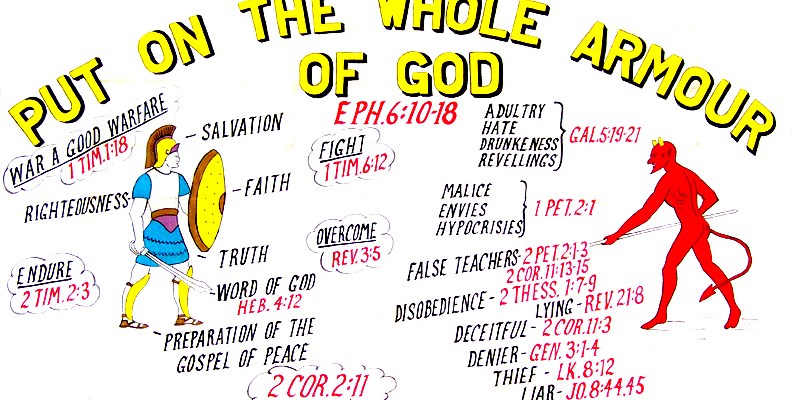 PUT ON THE WHOLE ARMOUR
OF GOD
EPH.6:10-18
WAR A GOOD WARFARE
1 TIM.1:18
SALVATION
FIGHT
1 TIM.6:12
RIGHTEOUSNESS
FAITH
TRUTH
OVERCOME
REV.3:5
ENDURE
2 TIM.2:3
WORD OF GOD
HEB. 4:12
PREPARATION OF THE
GOSPEL OF PEACE
2 COR.2:11
ADULTRY
HATE
DRUNKENESS
REVELLINGS
GAL.5:19-21
MALICE
ENVIES
HYPOCRISIES
1 PET.2:1
FALSE TEACHERS-2 PET.2:1-3
2 COR.11:13-15
DISOBEDIENCE-2 THESS. 1:7-9
LYING-REV.21:8
DECEITFUL-2 COR.11:3
DENIER-GEN. 3:1-4
THIEF-LK.8:12
LIAR-JO.8:44.45